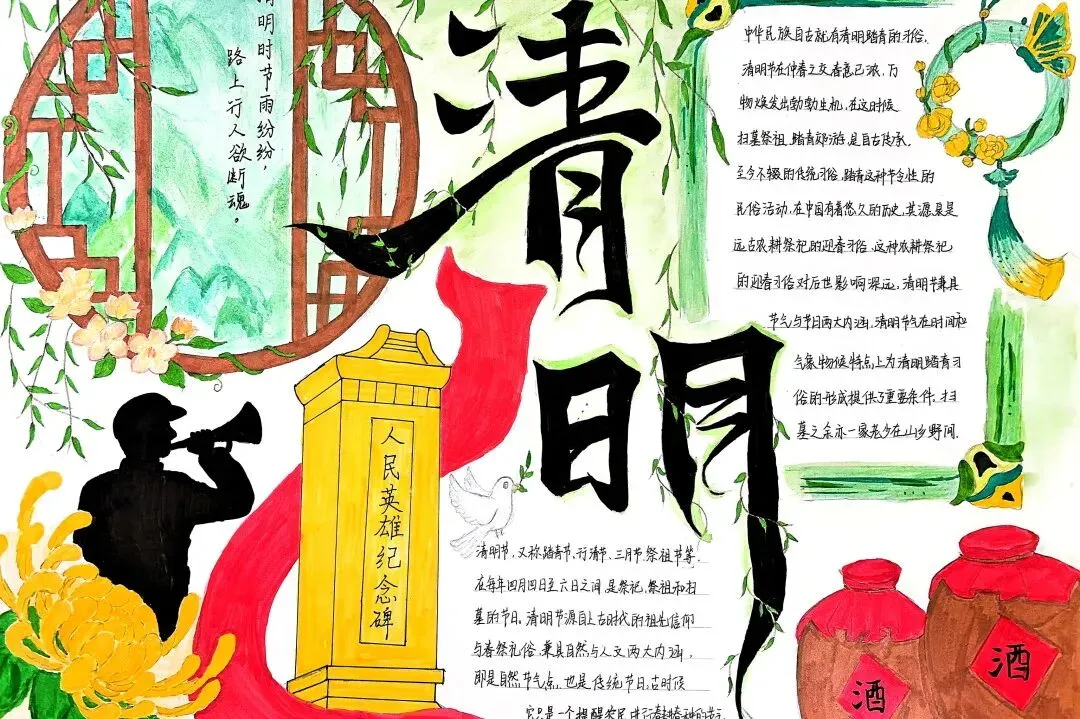 清明时节雨纷纷，
路上行人欲断魂。
清明
中华民族自古就有清明踏青的习俗.
清明节在仲春之交春意已浓.万
物焕发出勃勃生机.在这时候
扫墓祭祖.踏青郊游.是自古传承.
至今不辍的传统习俗.踏青这种节令性的
民俗活动.在中国有着悠久的历史.其源泉是
远古农耕祭祀的迎春习俗.这种农耕祭祀
的迎春习俗对后世影响深远.清明节兼具
节气与节日两大内涵.清明节气在时间和
气象物候特点上为清明踏青习
俗的形成提供了重要条件.扫
墓之余亦一家老少在山乡野间.
人民英雄纪念碑
清明节.又称踏青节、行清节、三月节祭祖节等.
在每年四月四日至六日之间.是祭祀.祭祖和扫
墓的节日.清明节源自上古时代的祖先信仰
与春祭礼俗.兼具自然与人文两大内涵.
即是自然节气点.也是传统节日.古时候
它只是一个提醒农民进行春耕春种的节
酒
酒